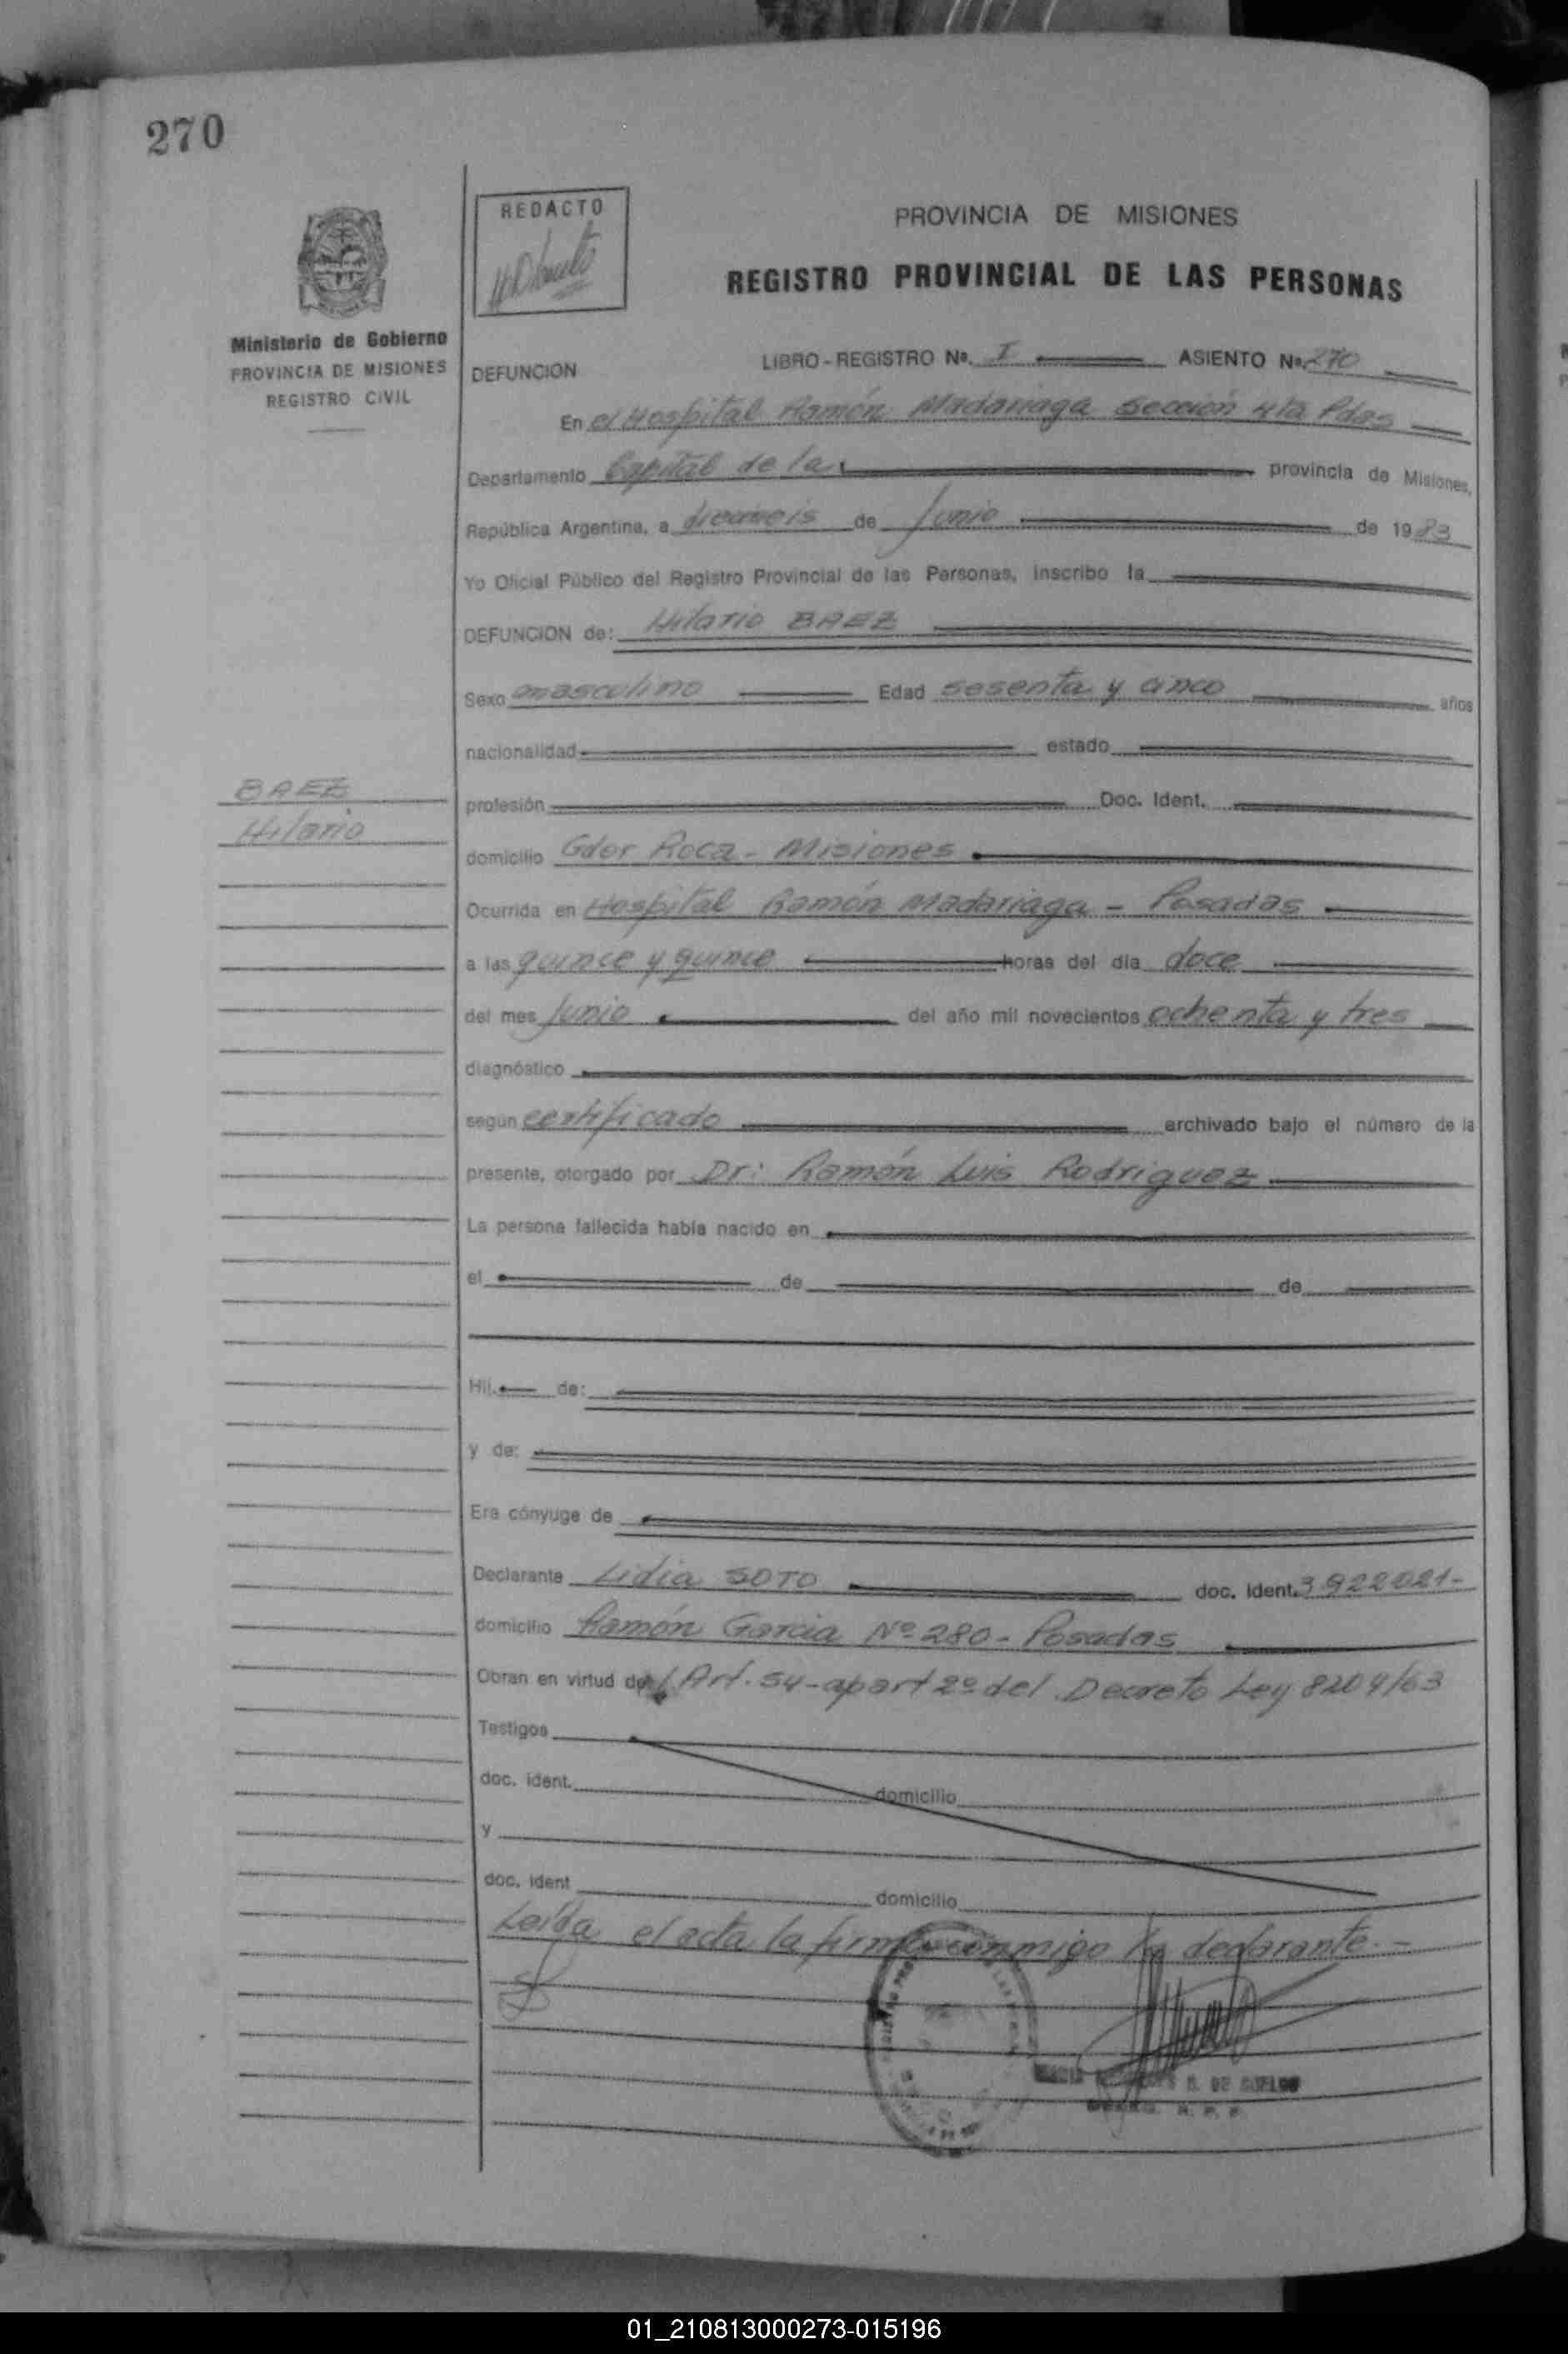 270
REDACTO
PROVINCIA DE MISIONES
REGISTRO PROVINCIAL DE LAS PERSONAS
Ministerio de Gobierno
PROVINCIA DE MISIONES
REGISTRO CIVIL
DEFUNCION
LIBRO - REGISTRO No. I ASIENTO No. 270
En el Hospital Ramón Madariaga Sección 4ta Pdas
Departamento Capital de la provincia de Misiones,
República Argentina, a dieciseis de Junio de 1983
Yo Oficial Público del Registro Provincial de las Personas, inscribo la
DEFUNCION de: Hilario BAEZ
Sexo masculino Edad sesenta y cinco años
nacionalidad estado
BAEZ
Hilario
profesión Doc. Ident.
domicilio Gdor Roca - Misiones
Ocurrida en Hospital Ramón Madariaga - Posadas
a las quince y quince horas del día doce
del mes Junio del año mil novecientos ochenta y tres
diagnóstico
según certificado archivado bajo el número de la
presente, otorgado por Dr: Ramón Luis Rodriguez
La persona fallecida había nacido en
el de de
Hij. de:
y de:
Era cónyuge de
Declarante Lidia SOTO doc. Ident. 3.922.021-
domicilio Ramón Garcia Nº 280 - Posadas
Obran en virtud del Art. 54 - apart 2º del Decreto Ley 8204/63
Testigos
doc. ident. domicilio
y
doc. ident domicilio
Leída el acta la firma conmigo la declarante.-
01_210813000273-015196